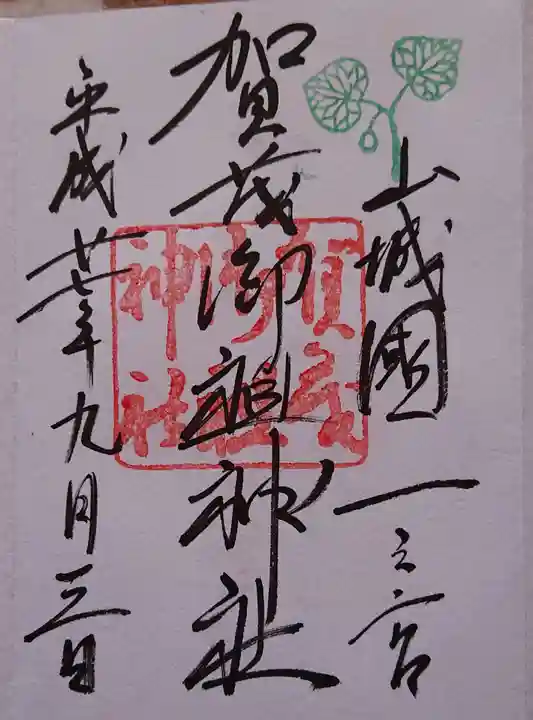 山城國一之宮
賀茂御祖神社
平成廿七年九月三日
賀茂御祖神社